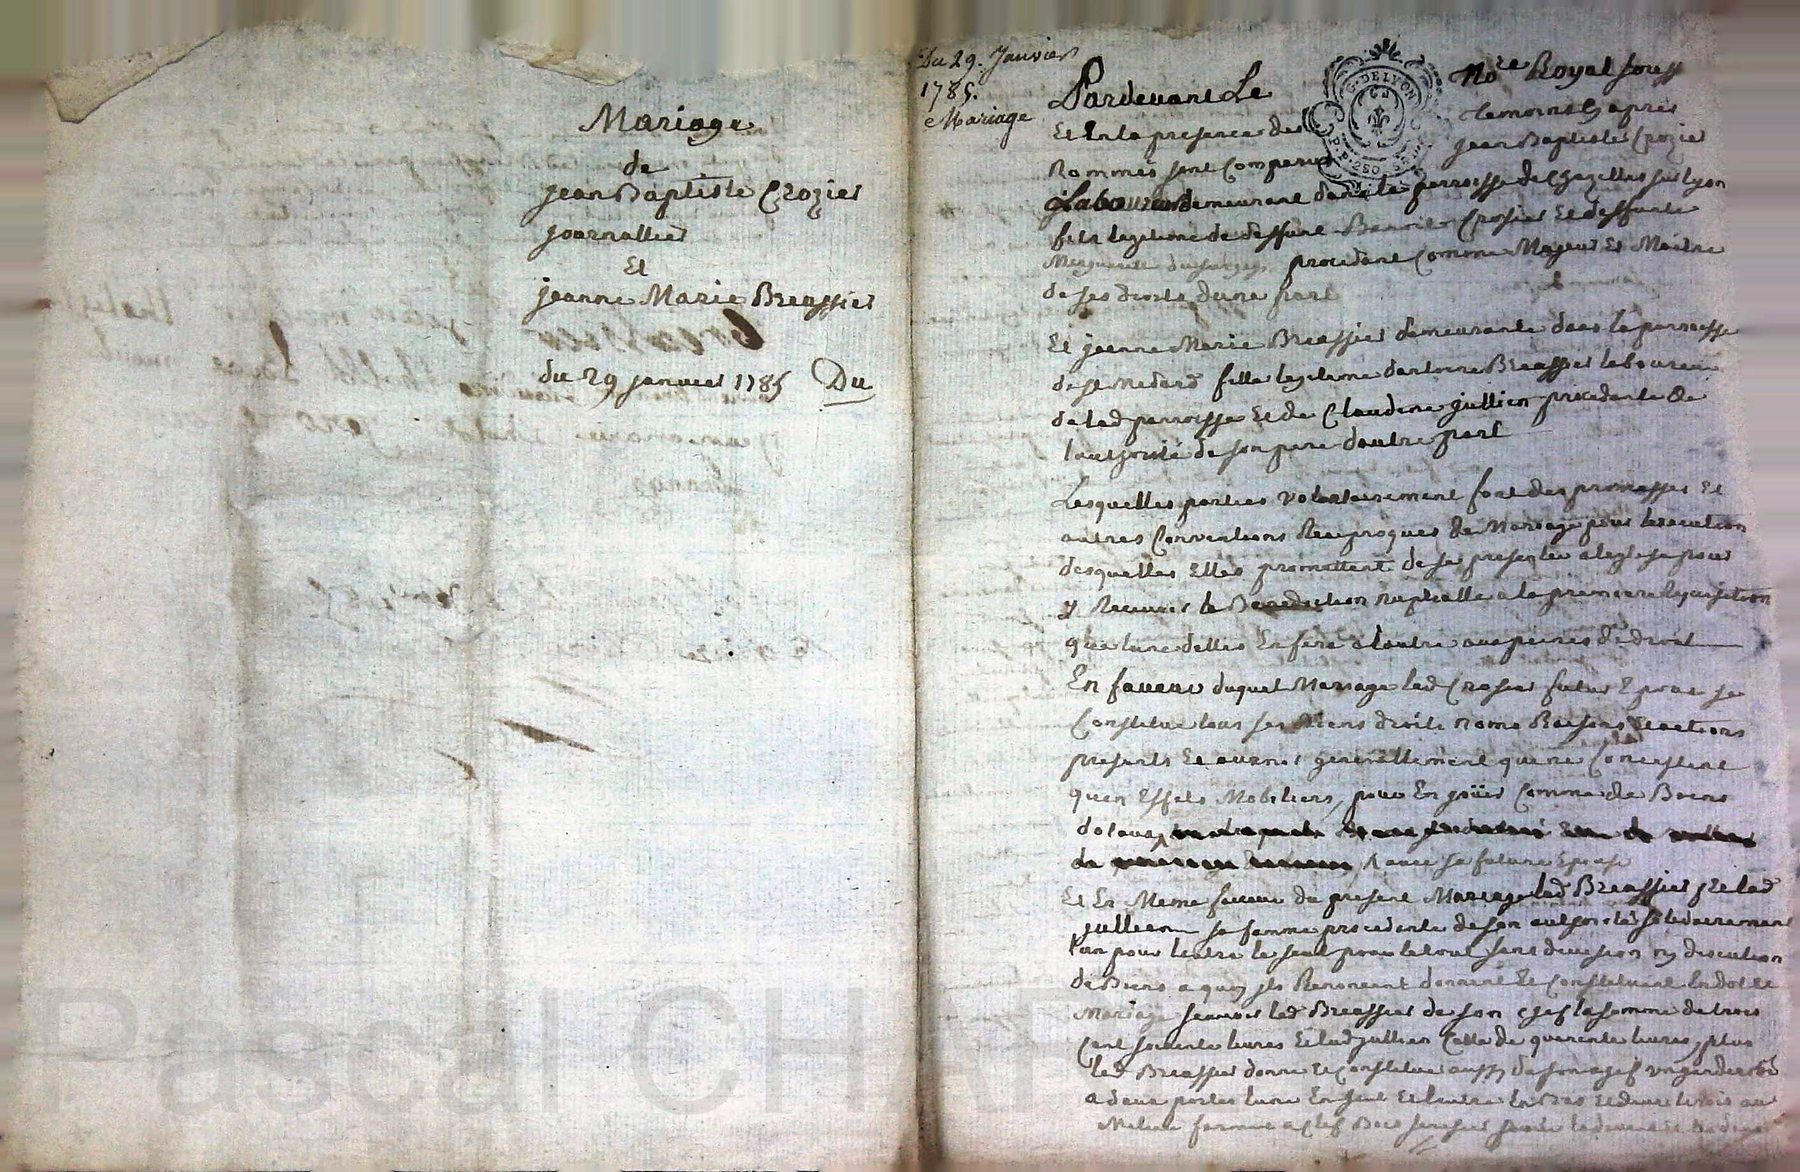 Mariage
de
jean Baptiste Crozier
journallier
Et
jeanne Marie Breassier
du 29 janvier 1785 Du
Du 29. Janvier
1785.
Mariage
G. DE LYON
Pardevant Le No.re Royal souss
Et En la presence des temoins cy apres
Nommés sont Comparus jean Baptiste Crozier
Laboureur demeurant dans la parroisse de Chazelles sur Lyon
fils legitime de deffunt Benoit Crosier Et deffunte
procedant Comme Majeur Et Maitre
de ses droits dune part
Et jeanne Marie Breassier demeurante dans la parroisse
de St Medard fille legitime dantoine Breassier laboureur
de lad parroisse Et de Claudine jullien procedante de
lauthorité de son pere dautre part
Lesquelles parties volontairement font des promesses Et
autres Conventions Reciproques de Mariage pour lexecution
desquelles Elles promettent de se presenter a leglise pour
y Recevoir la Benediction nuptialle a la premiere Requisition
que lune delles En fera a lautre aux peines de droit
En faveur duquel Mariage led Crosier futur Epoux se
Constitue tous ses Biens droits noms Raisons Et actions
presents Et avenir generallement que ne Consistent
quen Effets Mobiliers, pour En joüir Comme de Biens
dotaux
de avec sa future Epouse
Et En Meme faveur du present Mariage led Breassier Et lad
jullien sa femme procedante de son authorité solidairement
lun pour lautre le seul pour le tout sans division ny discution
de Biens a quoy ils Renoncent donnent Et Constituent En dot Et
Mariage scavoir led Breassier de son chef la somme de trois
Cent soixante livres Et lad jullien Celle de quarente livres, plus
led Breassier donne Et Constitue aussy de son chef un garderobe
a deux portes lune En haut Et lautre En Bas Et deux tirois au
Milieu fermant a clef Bois
Pascal CHA